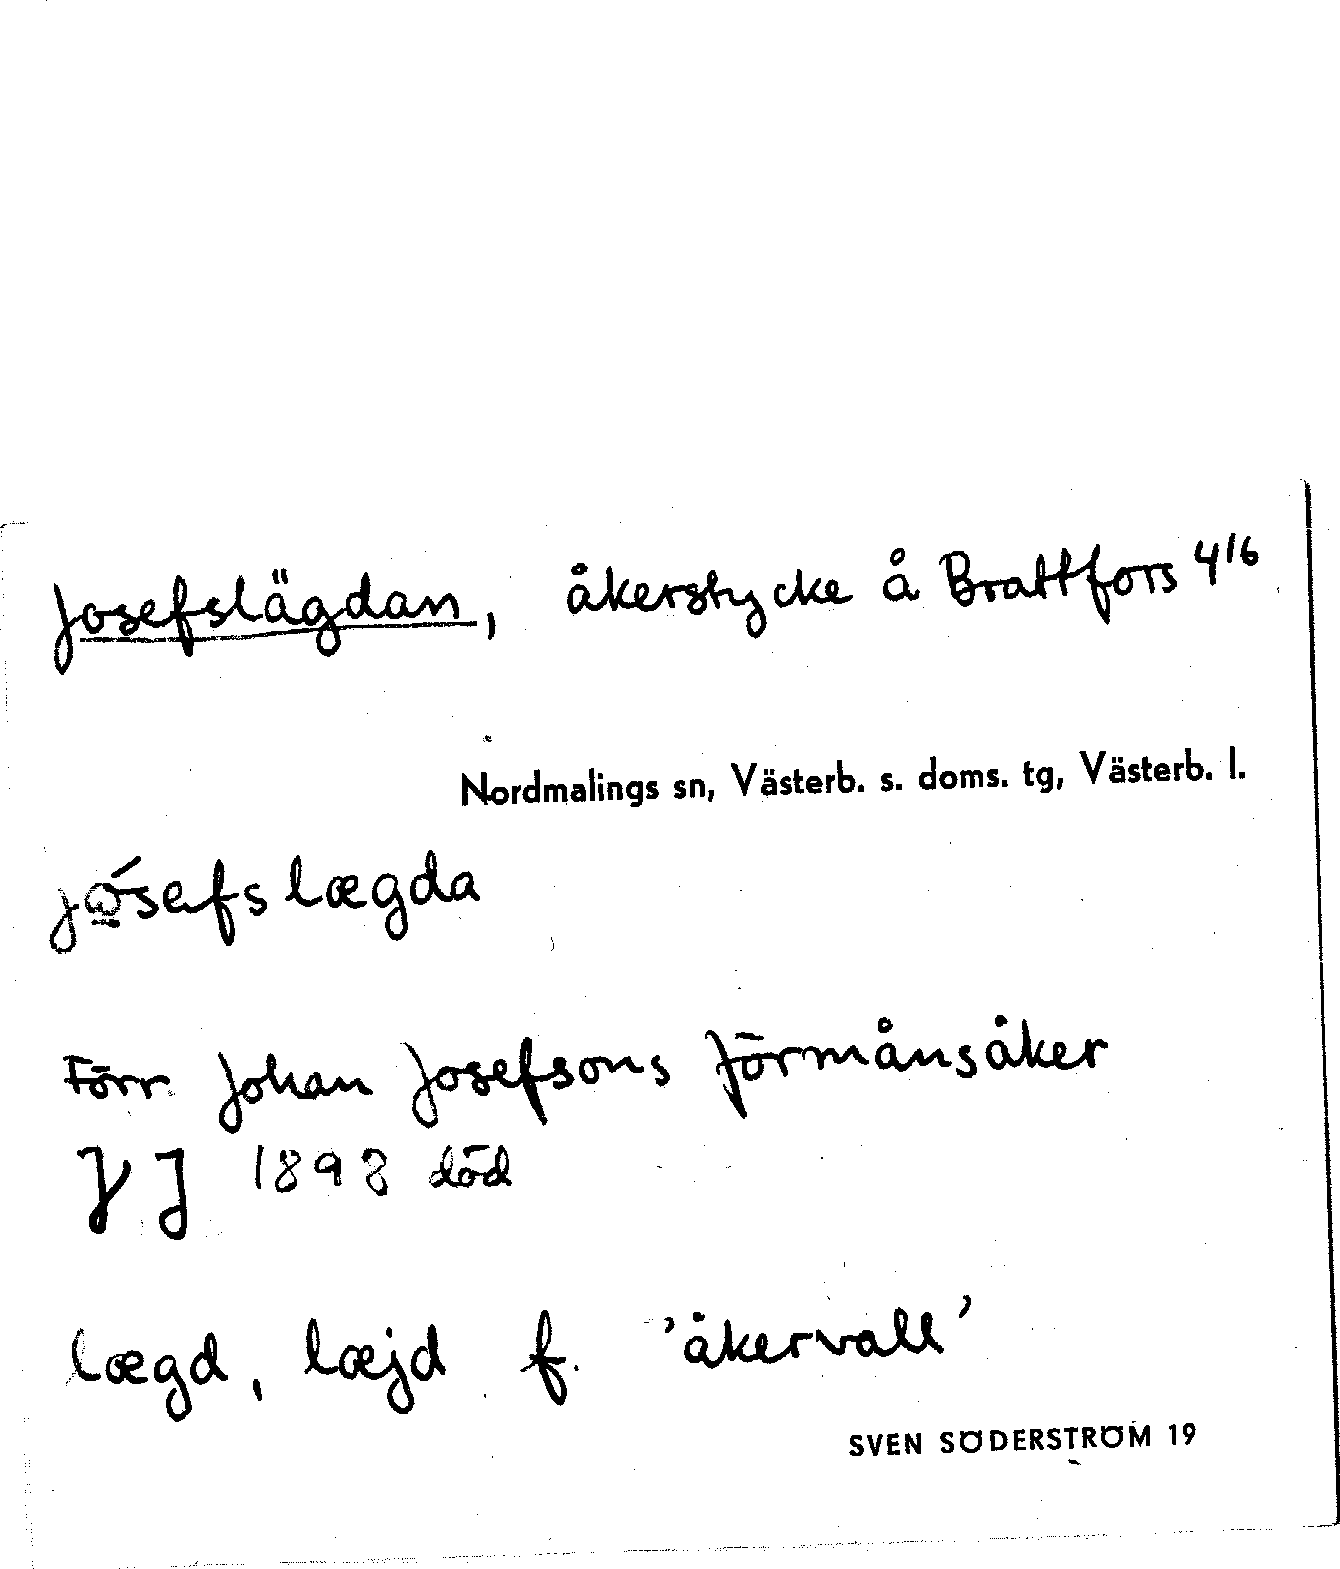 Josefslägdan, åkerstycke å Brattfors 4¹⁶
Nordmalings sn, Västerb. s. doms. tg, Västerb. l.
jó̲̲sefslægda
Förr Johan Josefsons förmånsåker
JJ 1898 död
lægd, læjd f. 'åkervall'
SVEN SÖDERSTRÖM 19